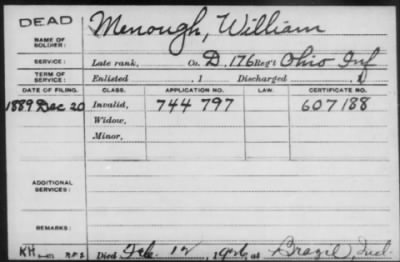 DEAD
NAME OF SOLDIER: Menough, William
SERVICE: Late rank, Co. D, 176 Reg't Ohio Inf
TERM OF SERVICE: Enlisted , 1 Discharged , 1
DATE OF FILING. CLASS. APPLICATION NO. LAW. CERTIFICATE NO.
1889 Dec 20 Invalid, 744 797 607188
Widow,
Minor,
ADDITIONAL SERVICES:
REMARKS:
KH
Died Feb. 12, 1926, at Brazil, Ind.